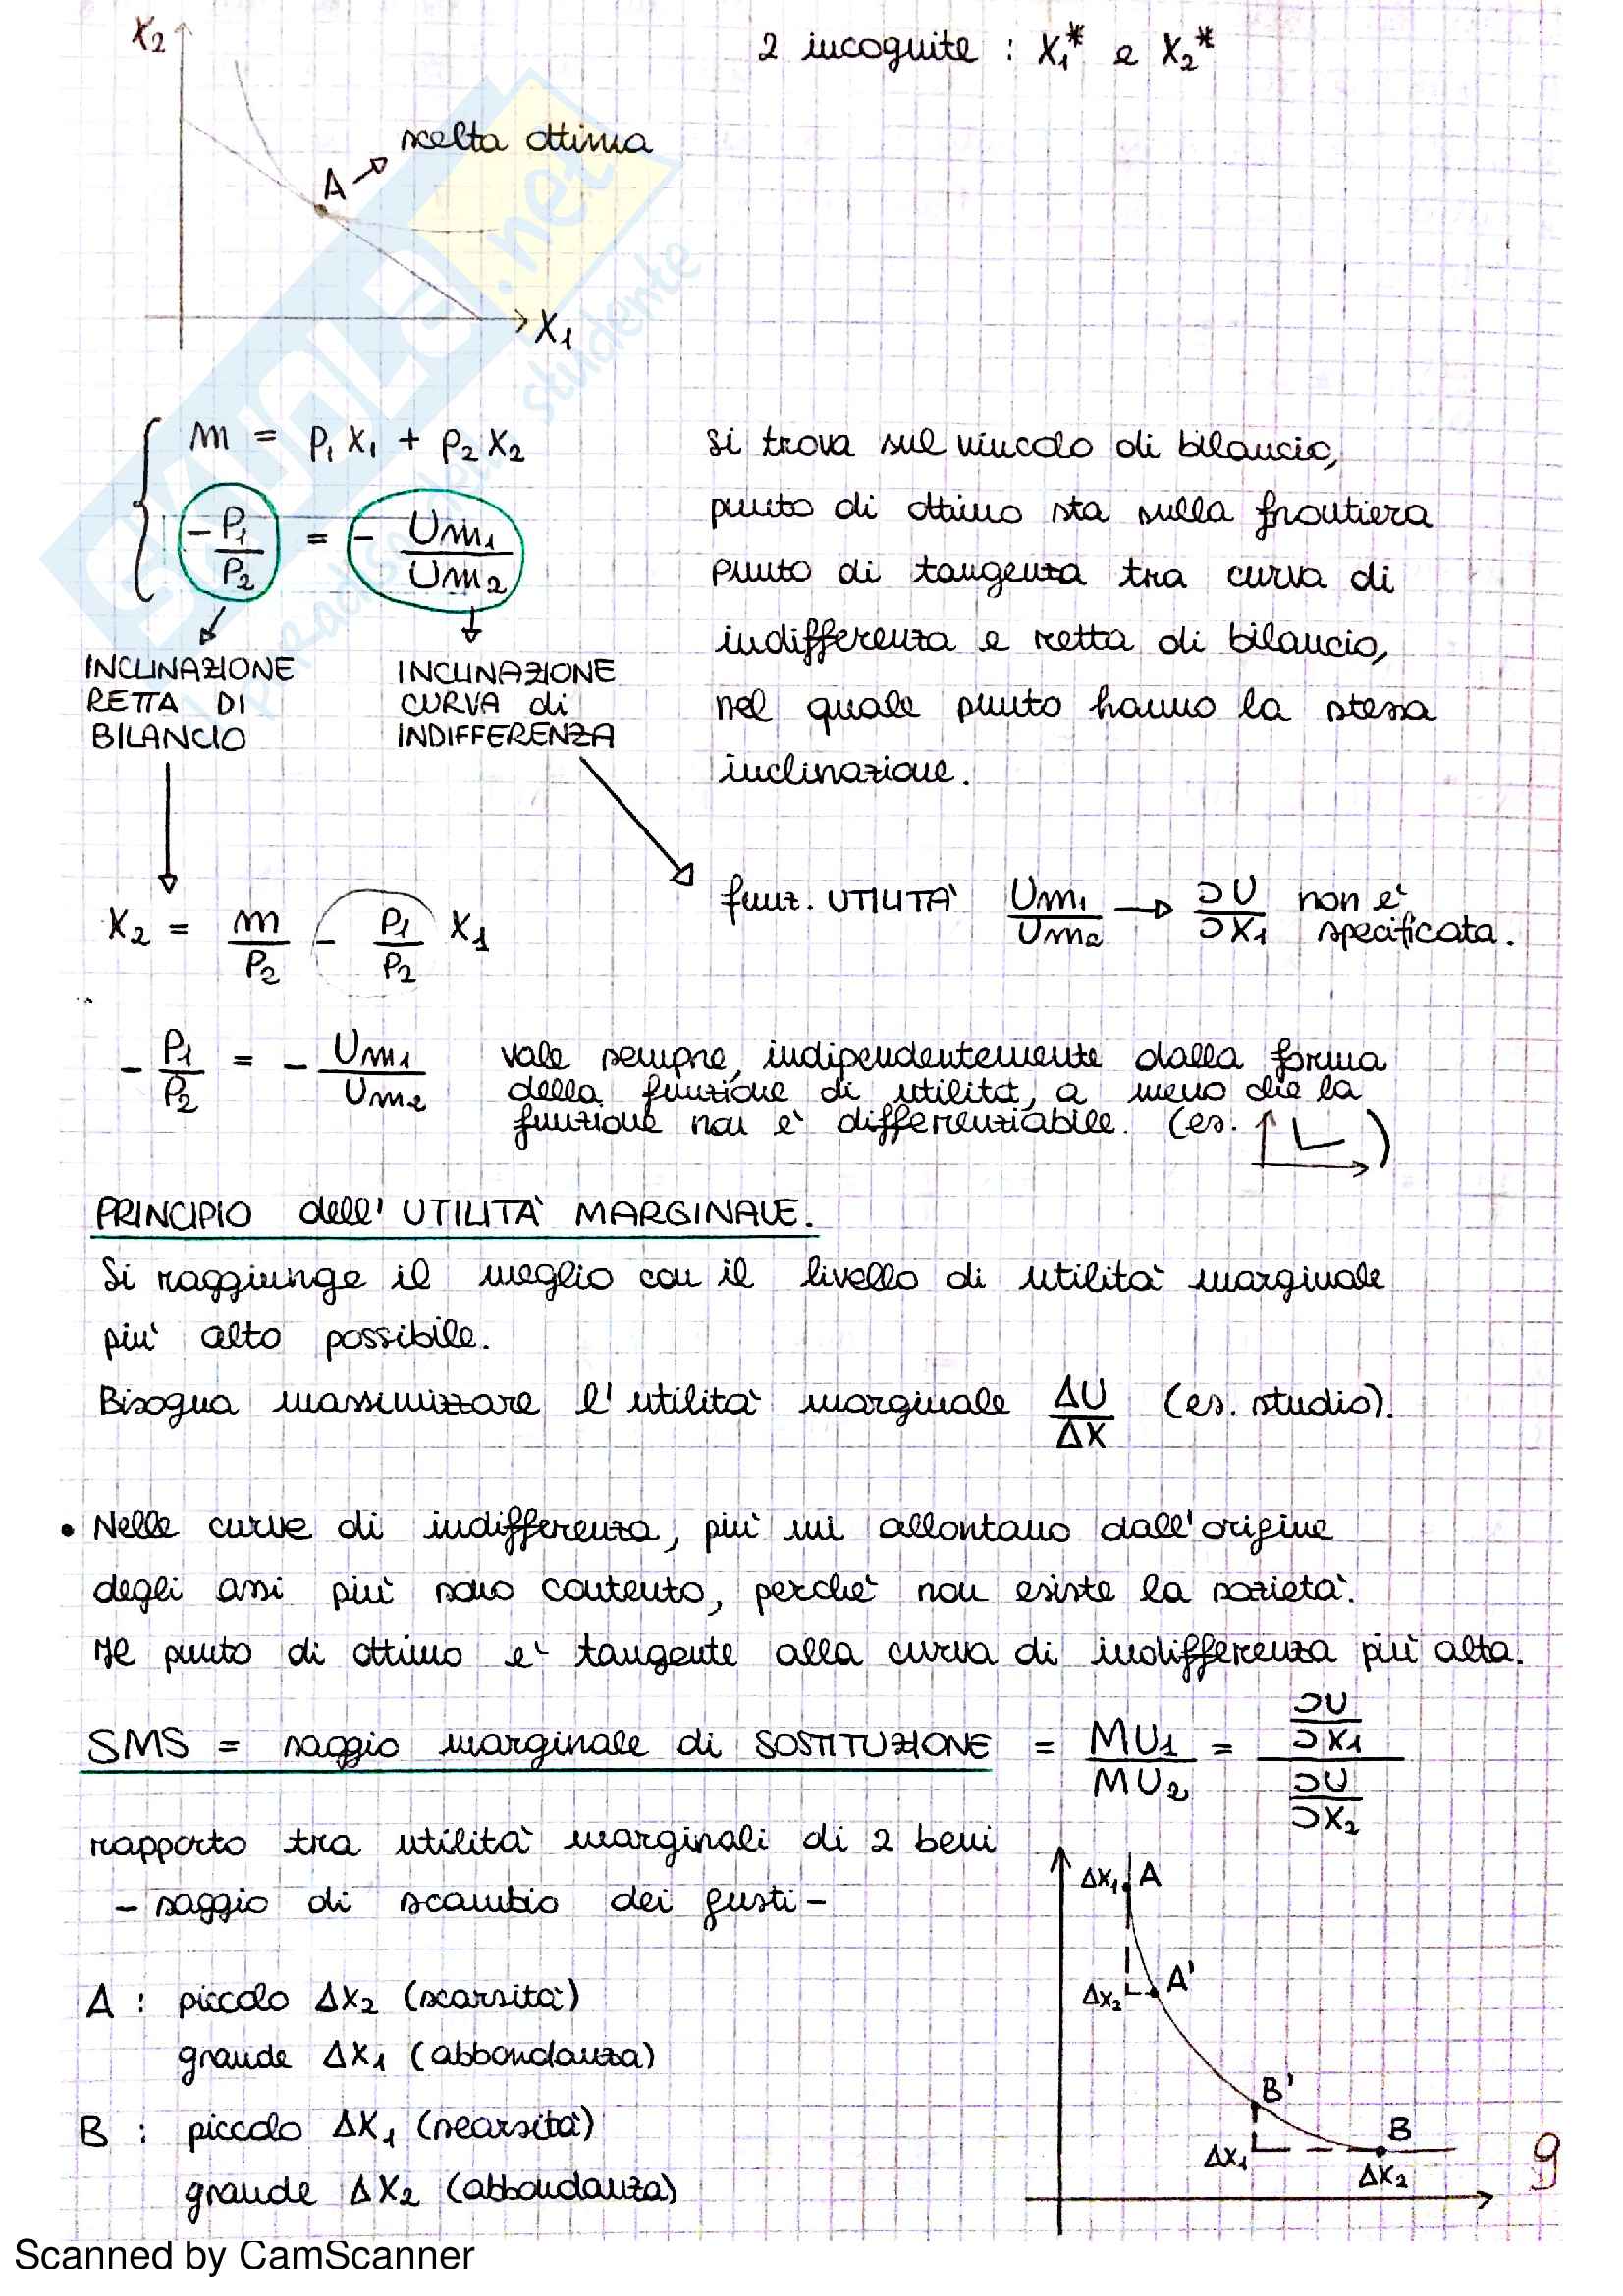 X₂
2 incognite : X₁* e X₂*
scelta ottima
A
X₁
m = P₁ X₁ + P₂ X₂
- P₁/P₂ = - Um₁/Um₂
si trova sul vincolo di bilancio,
punto di ottimo sta sulla frontiera
punto di tangenza tra curva di
indifferenza e retta di bilancio,
nel quale punto hanno la stessa
inclinazione.
INCLINAZIONE
RETTA DI
BILANCIO
INCLINAZIONE
CURVA di
INDIFFERENZA
X₂ = m/P₂ - P₁/P₂ X₁
funz. UTILITÀ Um₁/Um₂ → ∂U/∂X₁ non è
specificata.
- P₁/P₂ = - Um₁/Um₂
vale sempre, indipendentemente dalla forma
della funzione di utilità, a meno che la
funzione non è differenziabile. (es. )
PRINCIPIO dell' UTILITÀ MARGINALE.
Si raggiunge il meglio con il livello di utilità marginale
più alto possibile.
Bisogna massimizzare l' utilità marginale ΔU/ΔX (es. studio).
• Nelle curve di indifferenza, più mi allontano dall'origine
degli assi più sono contento, perchè non esiste la sazietà.
Il punto di ottimo è tangente alla curva di indifferenza più alta.
SMS = saggio marginale di SOSTITUZIONE = MU₁/MU₂ = ∂U/∂X₁ / ∂U/∂X₂
rapporto tra utilità marginali di 2 beni
- saggio di scambio dei gusti -
A : piccolo ΔX₂ (scarsità)
grande ΔX₁ (abbondanza)
B : piccolo ΔX₁ (scarsità)
grande ΔX₂ (abbondanza)
ΔX₁ A
ΔX₂ A'
B'
ΔX₁ B
ΔX₂
9
Scanned by CamScanner